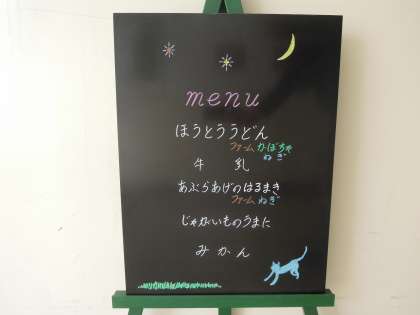 menu
ほうとううどん
ファーム かぼちゃ
ねぎ
牛 乳
あぶらあげのはるまき
ファーム ねぎ
じゃがいものうまに
みかん